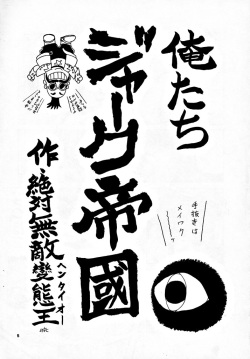 俺たち
ジャーク帝國
手抜きは
メイワク
作・絶対無敵變態王
ヘンタイオー